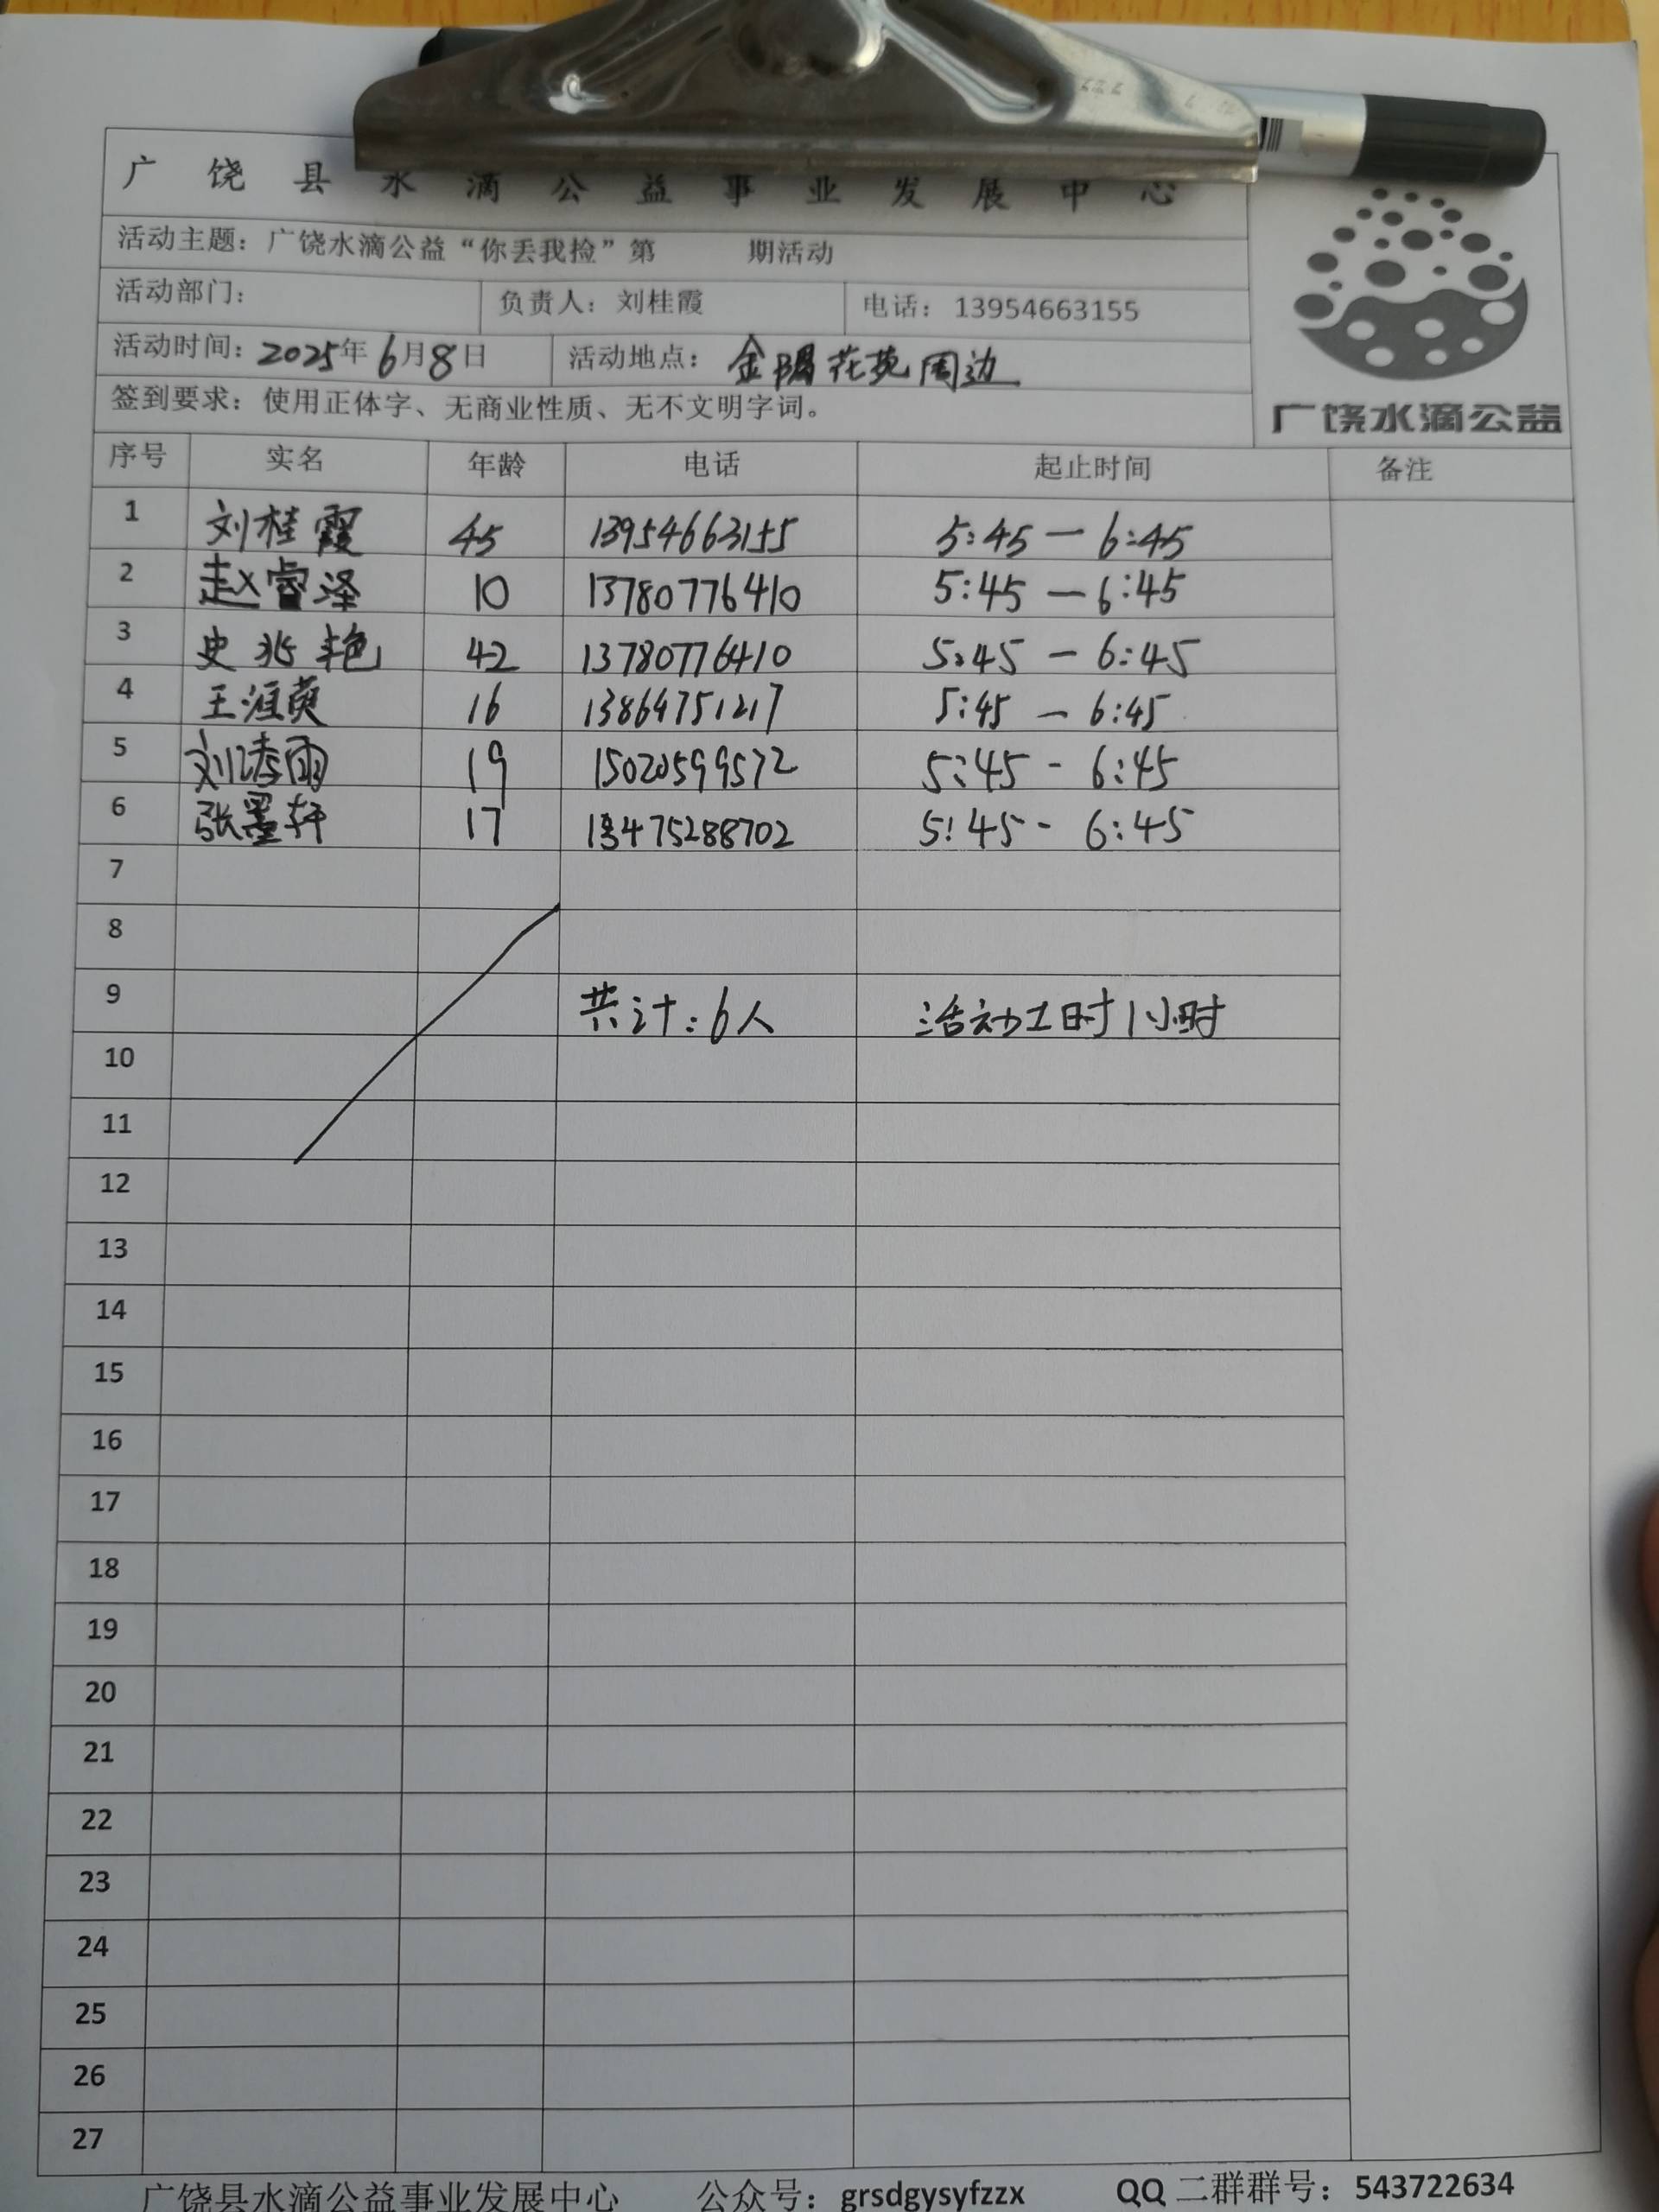 广饶县水滴公益事业发展中心
活动主题：广饶水滴公益“你丢我捡”第 期活动
活动部门： 负责人：刘桂霞 电话：13954663155
活动时间：2025年6月8日 活动地点：金阳花苑周边
签到要求：使用正体字、无商业性质、无不文明字词。
广饶水滴公益
序号 实名 年龄 电话 起止时间 备注
1 刘桂霞 45 13954663155 5:45-6:45
2 赵睿泽 10 13780776410 5:45-6:45
3 史兆艳 42 13780776410 5:45-6:45
4 王涯萸 16 13864751217 5:45-6:45
5 刘涛雨 19 15020599572 5:45-6:45
6 张墨轩 17 13475288702 5:45-6:45
7
8
9 共计：6人 活动工时1小时
10
11
12
13
14
15
16
17
18
19
20
21
22
23
24
25
26
27
广饶县水滴公益事业发展中心 公众号：grsdgysyfzzx QQ二群群号：543722634